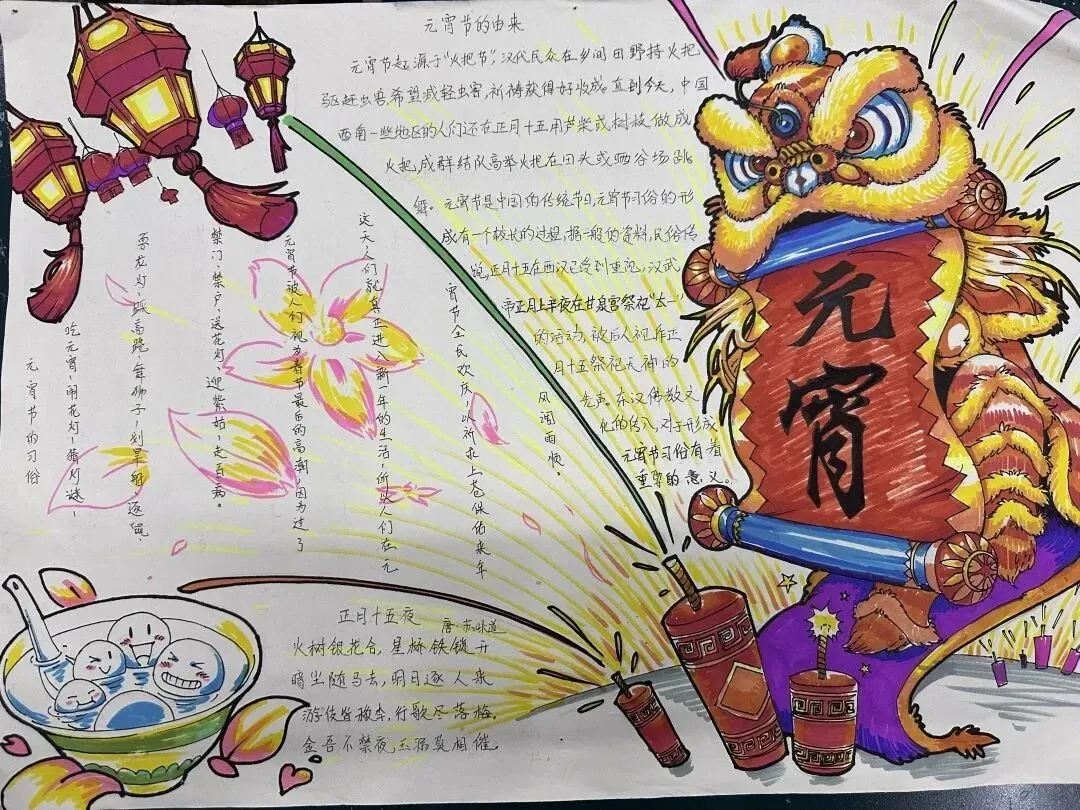 元宵节的由来
元宵节起源于“火把节”,汉代民众在乡间田野持火把
驱赶虫兽,希望减轻虫害,祈祷获得好收成。直到今天,中国
西南一些地区的人们还在正月十五用芦柴或树枝做成
火把,成群结队高举火把在田头或晒谷场跳
舞。元宵节是中国的传统节日,元宵节习俗的形
成有一个较长的过程,据一般的资料,民俗传
说,正月十五在西汉已受到重视,汉武
帝正月上辛夜在甘泉宫祭祀“太一”
的活动,被后人视作正
月十五祭祀天神的
先声。东汉佛教文
化的传入,对于形成
元宵节习俗有着
重要的意义。
元宵
元宵节的习俗
吃元宵、闹花灯、猜灯谜、
耍龙灯、踩高跷、舞狮子、划旱船、逐鼠
禁门、祭户、送花灯、迎紫姑、走百病。
元宵节被人们视为春节最后的高潮,因为过了
这天,人们就真正进入新一年的生活,所以人们在元
宵节全民欢庆,以祈求上苍保佑来年
风调雨顺。
正月十五夜
唐·苏味道
火树银花合,星桥铁锁开
暗尘随马去,明日逐人来
游伎皆秾李,行歌尽落梅。
金吾不禁夜,玉漏莫相催。